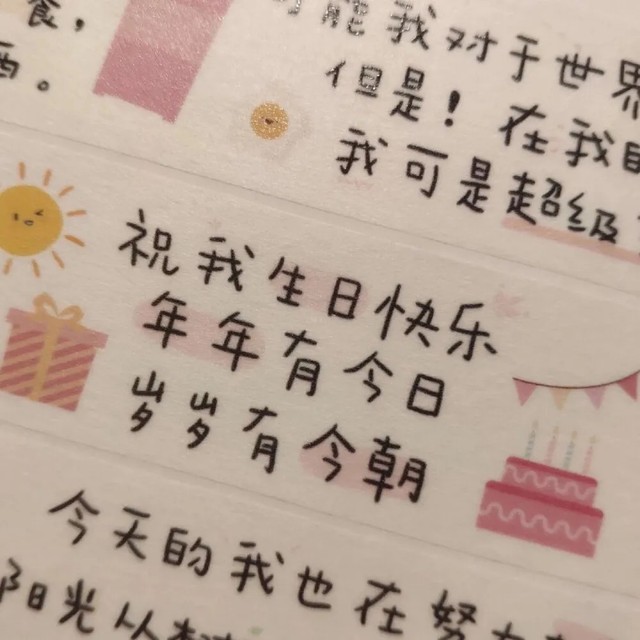 食，
西。
能我对于世界
但是！在我的
我可是超级
祝我生日快乐
年年有今日
岁岁有今朝
今天的我也在努
阳光